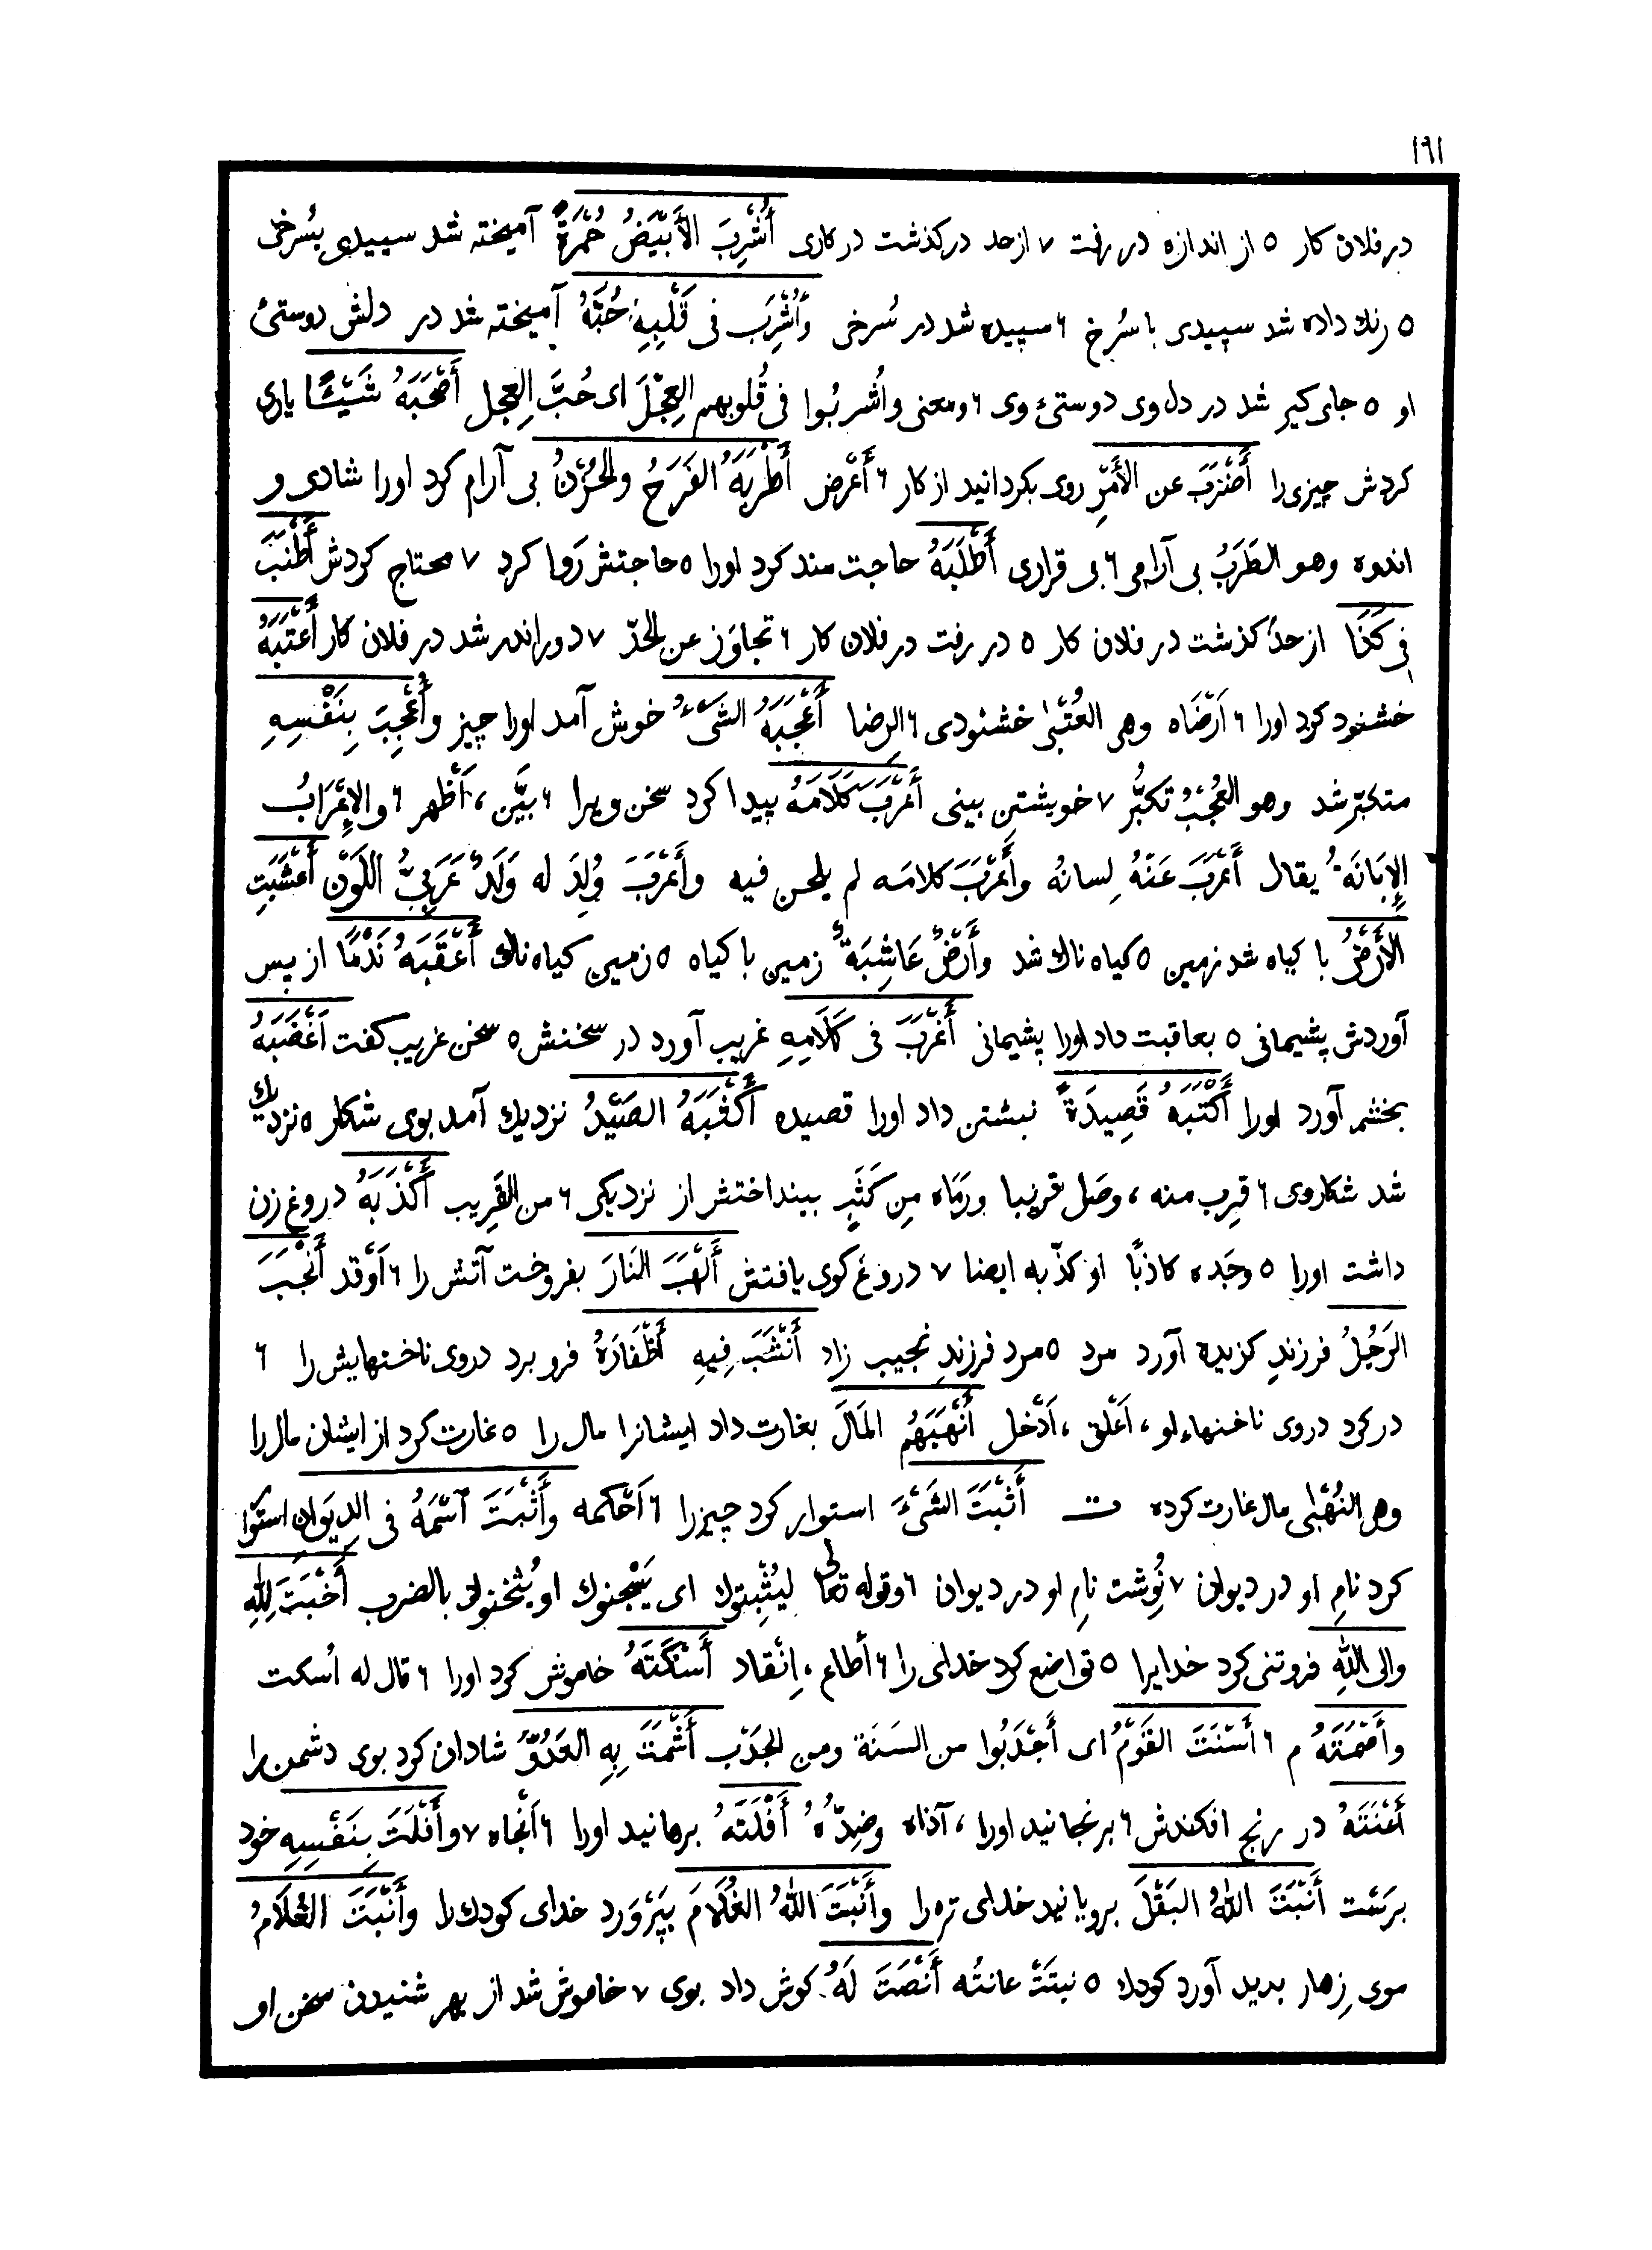 ۱۶۱
در فلان کار ۵ از اندازه در رفت ۷ از حد در کذشت در کاری أُشْرِبَ الأَبْیَضُ حُمْرَةً آمیخته شد سپیدی بسُرخی
۵ رنك داده شد سپیدی با سُرخ ۶ سپیده شد در سُرخی وَأُشْرِبَ فی قَلْبِهِ حُبَّهُ آمیخته شد در دلش دوستئ
او ۵ جای کیر شد در دل وی دوستئ وی ۶ ومعنی واُشربُوا فی قُلوبهم العِجْلَ ای حُبَّ العِجل أَصْحَبَهُ شَیْئًا یاری
کردش چیزی را أَضْرَبَ عن الأَمْرِ روی بکردانید از کار ۶ أَعْرض أَطْرَبَهُ الفَرَحُ والحُزْنُ بی آرام کرد اورا شادی و
اندوه وهو الطَرَبُ بی آرامی ۶ بی قراری أَطْلَبَهُ حاجت مند کرد اورا ۵ حاجتش رَوا کرد ۷ محتاج کردش أَطْنَبَ
فی کَذَا از حدّ کذشت در فلان کار ۵ در رفت در فلان کار ۶ تجاوَز عن الحدّ ۷ دور اندر شد در فلان کار أَعْتَبَهُ
خشنود کرد اورا ۶ اَرْضَاه وهی العُتْبٰی خشنودی ۶ الرِضا أَعْجَبَهُ الشَیْءُ خوش آمد اورا چیز وأُعْجِبَ بِنَفْسِهِ
متکبّر شد وهو العُجْبُ تکبُّر ۷ خویشتن بینی أَعْرَبَ کَلَامَهُ پیدا کرد سخن ویرا ۶ بیَّن ، أَظهر ۶ والإِعْرَابُ
الإِبَانَةُ یقال أَعْرَبَ عَنْهُ لِسانُه وأَعْرَبَ کلامَه لم یلحن فیه وأَعْرَبَ وُلِدَ له وَلَدٌ عَرَبِیُّ اللَوْن أَعْشَبَتِ
الأَرْضُ با کیاه شد زمین ۵ کیاه ناك شد وأَرْضٌ عَاشِبَةٌ زمین با کیاه ۵ زمین کیاه ناك أَعْقَبَهُ نَدْمًا از پس
آوردش پشیمانی ۵ بعاقبت داد اورا پشیمانی أَغْرَبَ فی کَلَامِهِ غریب آورد در سخنش ۵ سخن غریب کفت أَغْضَبَهُ
بخشم آورد اورا أَکْتَبَهُ قَصِیدَةً نبشتن داد اورا قصیده أَکْثَبَهُ الصَیْدُ نزدیك آمد بوی شکار ۵ نزدیك
شد شکاروی ۶ قرِب منه ، وصَل قریبا ورَمَاه مِن کَثَبٍ بینداختش از نزدیکی ۶ من القَرِیب أَکْذَبَهُ دروغ زن
داشت اورا ۵ وجَده کاذبًا او کذّبه ایضا ۷ دروغ کوی یافتش أَلْهَبَ النَارَ بفروخت آتش را ۶ اَوْقد أَنْجَبَ
الرَجُلُ فرزندِ کزیده آورد مرد ۵ مرد فرزندِ نجیب زاد أَنْشَبَ فِیهِ أَظْفَارَهُ فرو برد دروی ناخنهایش را ۶
در کرد دروی ناخنهاء او ، أَعْلق ، أَدْخل أَنْهَبَهُم المَالَ بغارت داد ایشانرا مال را ۵ غارت کرد از ایشان مال را
وهی النُهْبٰی مال غارت کرده ت أَثْبَتَ الشَیْءَ استوار کرد چیز را ۶ اَحْکمه وأَثْبَتَ ٱسْمَهُ فی الدِیوَان استوا
کرد نامِ او در دیوان ۷ نُوِشت نامِ او در دیوان ۶ وقوله تعالی لیُثْبِتوك ای یَسْجنوك او یُثخنوك بالضرب أَخْبَتَ لِلّٰهِ
والی اللّٰهِ فروتنی کرد خدایرا ۵ تواضع کرد خدای را ۶ أَطاع ، اِنْقاد أَسْکَتَهُ خاموش کرد اورا ۶ قال له اُسکت
وأَصْمَتَهُ م ۶ أَسْنَتَ القَوْمُ ای أَجْدَبُوا من السَنَة ومن الجَدْب أَشْمَتَ بِهِ العَدُوَّ شادان کرد بوی دشمن را
أَعْنَتَهُ در رنج افکندش ۶ برنجانید اورا ، آذاه وضِدُّهُ أَفْلَتَهُ برهانید اورا ۶ اَنْجاه ۷ وأَفْلَتَ بِنَفْسِهِ خود
برَسْت أَنْبَتَ اللّٰهُ البَقْلَ برویانید خدای تره را وأَنْبَتَ اللّٰهُ الغُلَامَ بپَرْوَرد خدای کودك را وأَنْبَتَ الغُلَامُ
موی زِهار بدید آورد کودك ۵ نبتَتْ عانتُه أَنْصَتَ لَهُ کوش داد بوی ۷ خاموش شد از بهر شنیدن سخن او